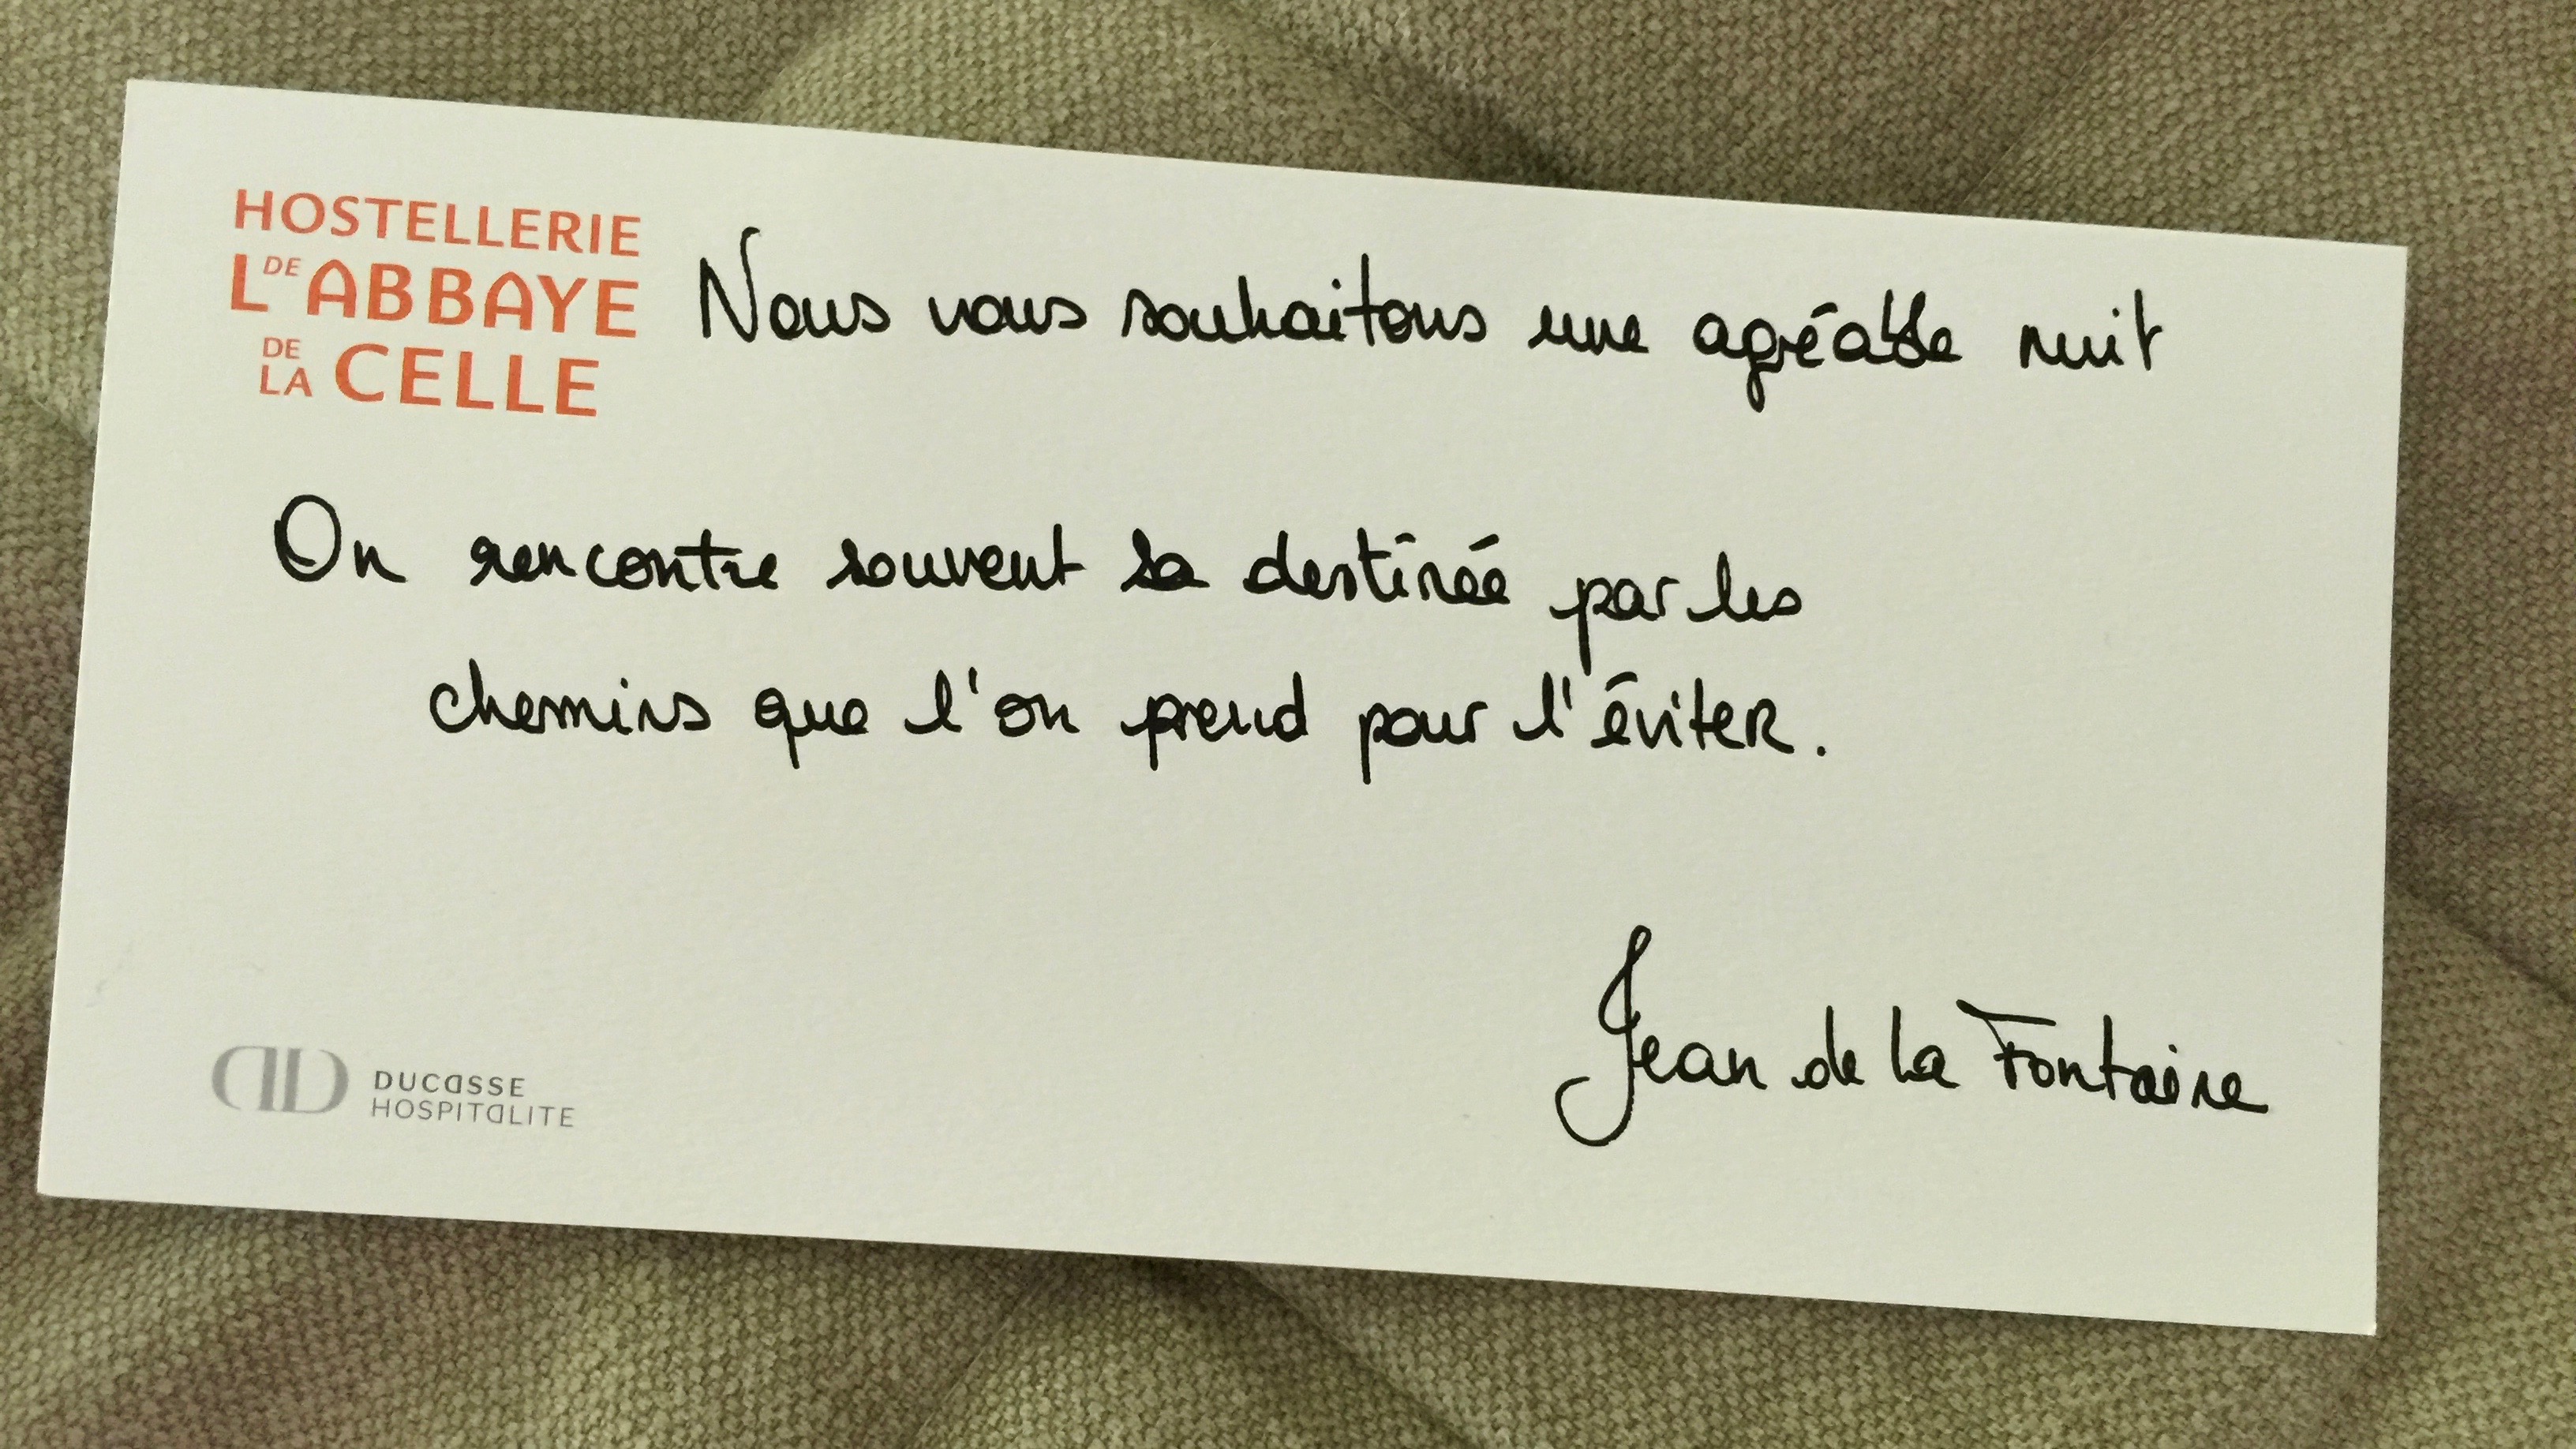 HOSTELLERIE
DE L'ABBAYE
DE LA CELLE
Nous vous souhaitons une agréable nuit
On rencontre souvent sa destinée par les
chemins que l'on prend pour l'éviter.
Jean de la Fontaine
AD
DUCASSE
HOSPITALITE